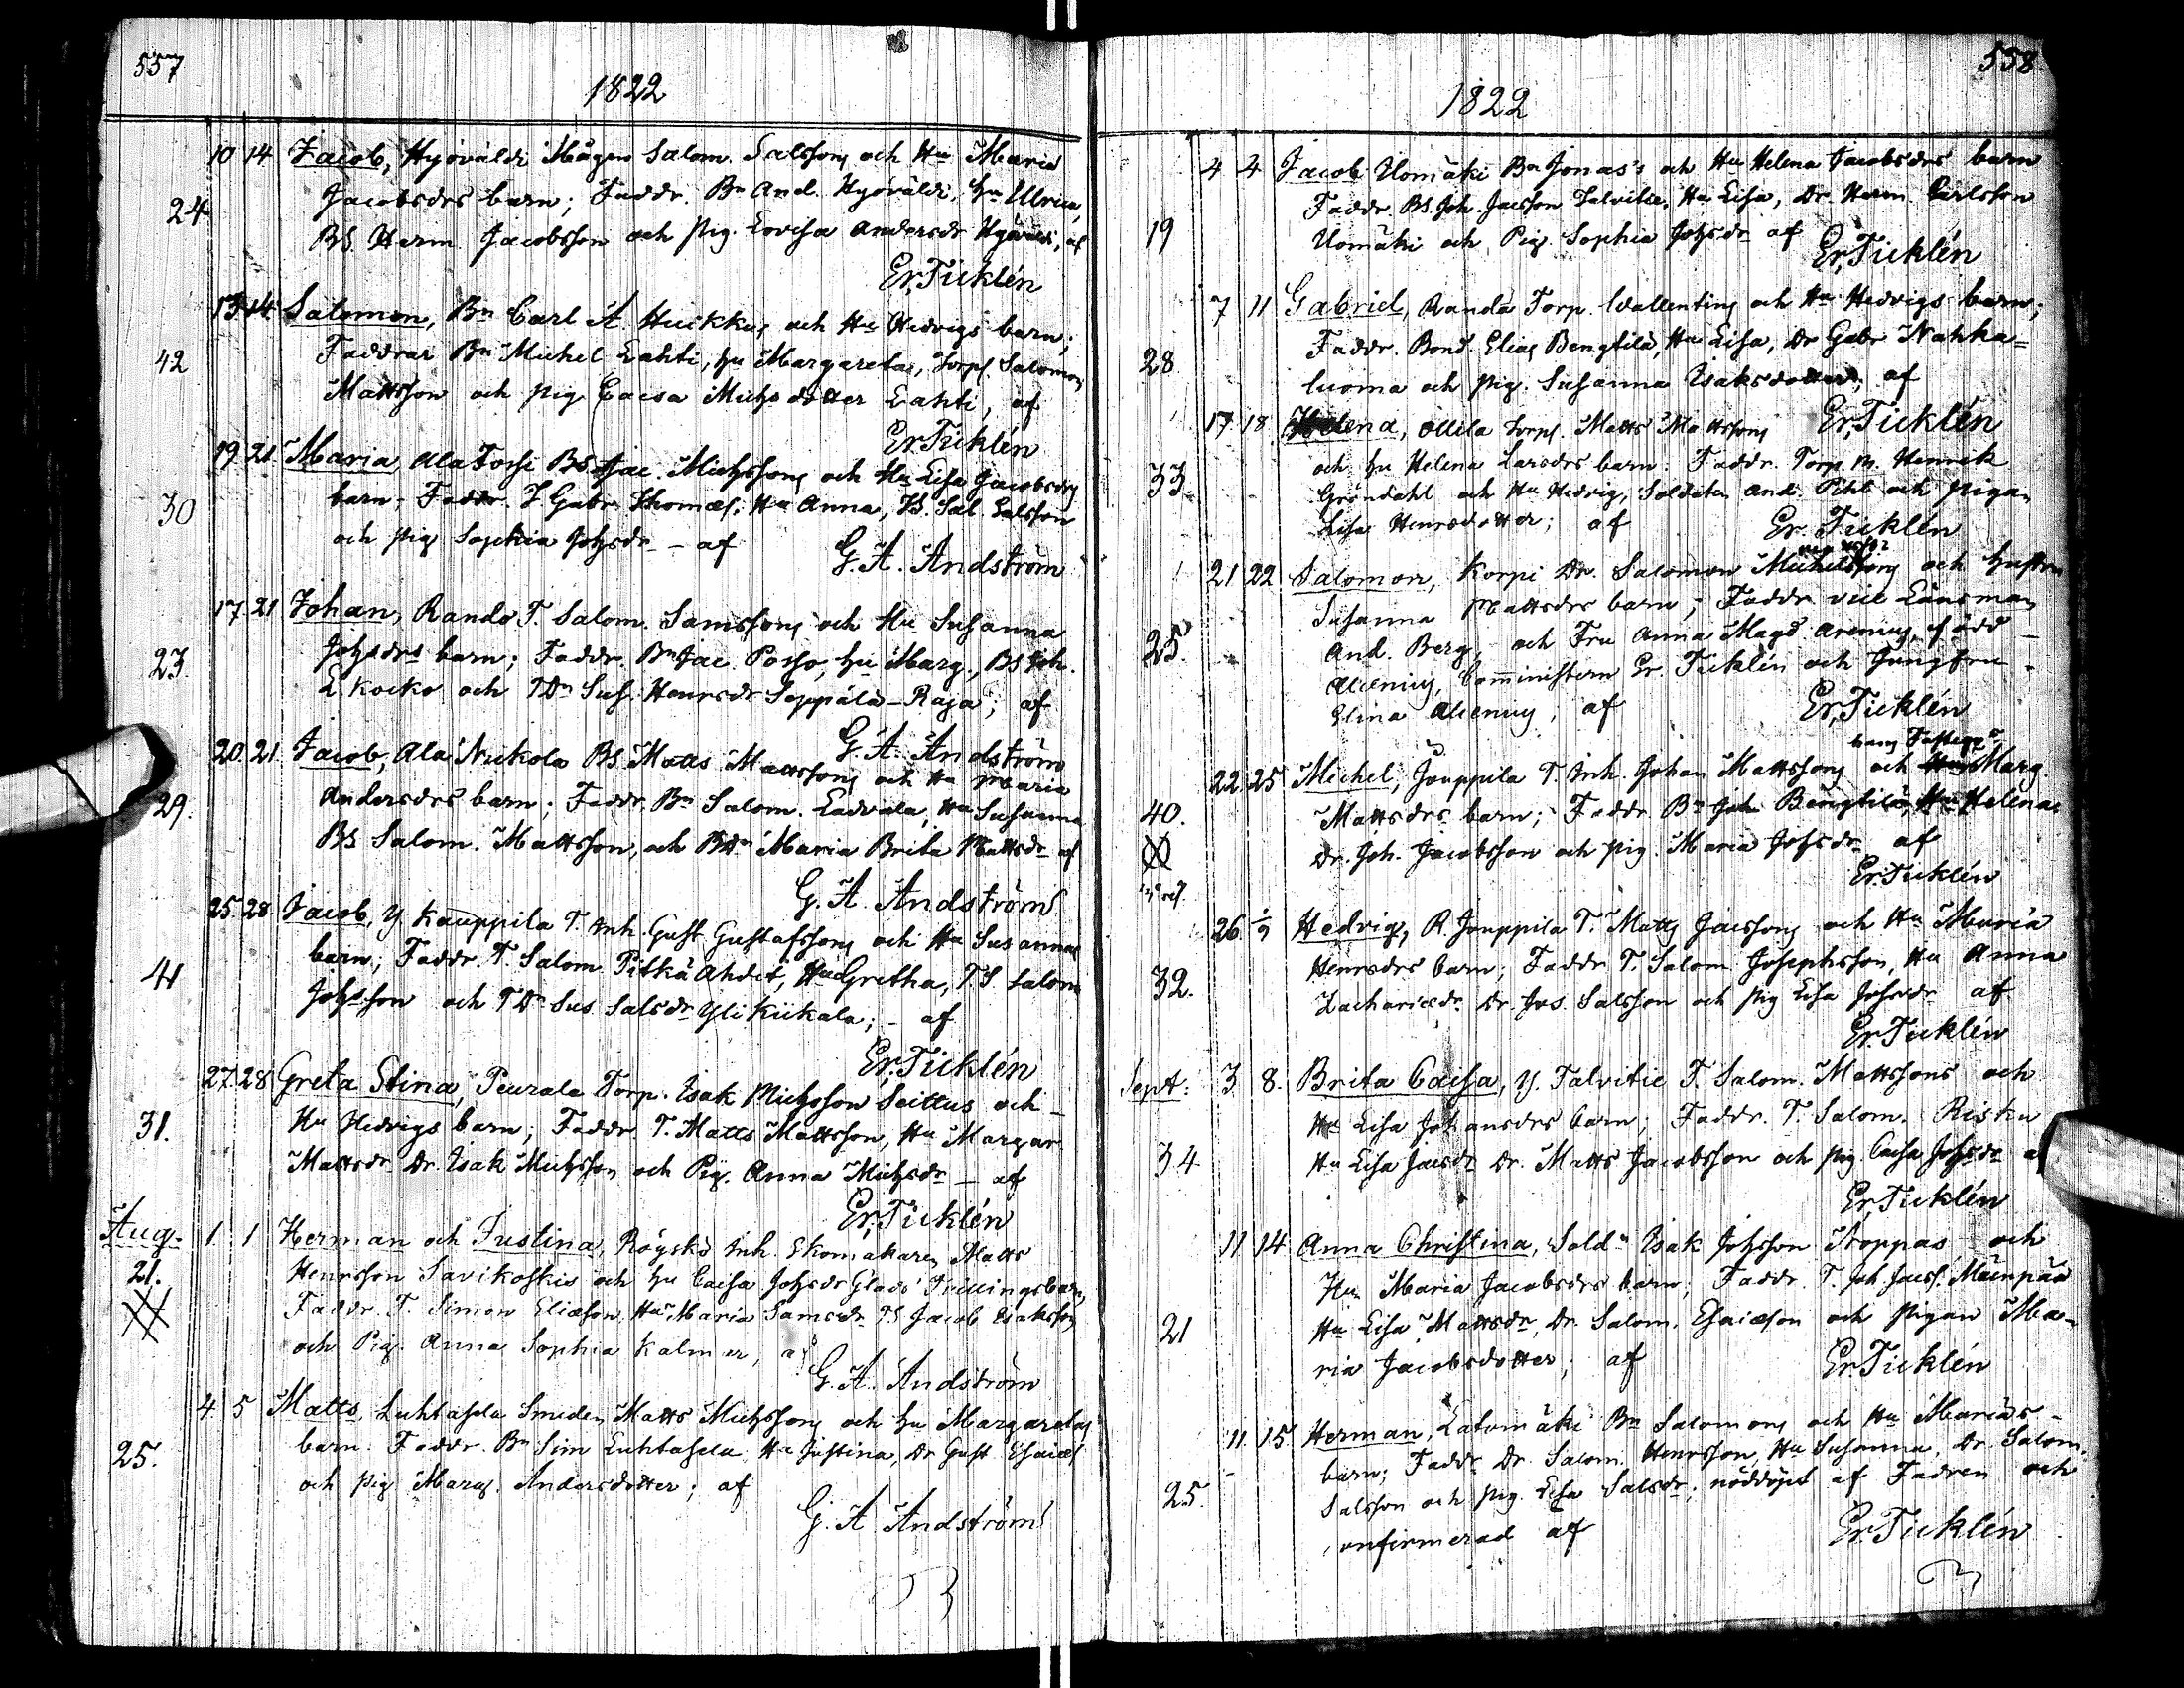 557
1822
10 14 Jacob, Hyöväldi Mågens Salom. Salssons och Hu Maria
Jacobsdrs barn; Faddr. Bn And. Hyöväldi, hu Ulrica,
24
BS. Herm. Jacobsson och pig. Lovisa Andersdr Hyöväldi, af
Er. Ticklén
13 14 Salomon, Bn Carl A. Huikkus och Hu Hedvigs barn;
42
Faddrar Bn Michel Lahti, hu Margareta, Torps. Salomon
Mattsson och pig Caisa Michsdotter Lahti, af
Er. Ticklén
19 21 Maria, Ala Fossi BS Jac. Michssons och Hu Lisa Jacobsdrs
30
barn; Faddr. T. Gabr. Thomæs. Hu Anna, BS. Sal. Salsson
och pig Sophia Johsdr – af
G. A. Andström
17 21 Johan, Rando T. Salom. Samssons och Hu Susanna
Johsdrs barn; Faddr. Bn Jac. Posso, hu Marg., BS Joh.
23.
L. Koiko och TDr Sus. Henrsdr Seppälä-Raja; af
G. A. Andström
20 21 Jacob, Ala Nickola BS Matts Mattssons och Hu Maria
29.
Andersdrs barn; Faddr. Bn Salom. Ladvala, Hu Susanna
BS Salom. Mattsson, och BDr Maria Brita Mattsdr af
G. A. Andström
25 28 Jacob, Y. Kauppila T. Inh. Gust. Gustafssons och Hu Susannas
barn; Faddr. T. Salom. Pitkä Ahdet, Hu Gretha, TS Salom
41
Johsson och TDr Sus. Salsdr Yli Kiikala; – af
Er. Ticklén
27. 28 Greta Stina, Peurala Torp. Isak Michsson Seittus och –
31.
Hu Hedvigs barn; Faddr. T. Matts Mattsson, Hu Margar
Mattsdr Dr. Isak Michsson och Pig. Anna Michsdr – af
Er. Ticklén
Aug. 1. 1 Herman och Justina, Rögskö Inh. Skomakaren Matts
21.
Henrsson Savikoskis och hu Caisa Johsdr Glads Tvillingsbarn,
Faddr. T. Simon Eliæson, Hu Maria Samsdr TS Jacob Isaksson
och Pig. Anna Sophia Kalmer, af
G. A. Andström
4. 5 Matts, Luhtasela Smeden Matts Michssons och hu Margaretas
25.
barn. Faddr. Bn Sim Luhtasela Hu Justina, Dr Gust Esaiæs
och pig Marg. Andersdotter; af
G. A. Andström
558
1822
4 4 Jacob Uomäki Bn Jonas's och Hu Helena Jacobsdrs barn
Faddr. BS. Joh. Jacsson Talvitie, Hu Lisa, Dr. Herm. Carlsson
19
Uomäki och Pig. Sophia Johsdr af
Er. Ticklén
7 11 Gabriel, Randa Torp. Wallentins och Hu Hedvigs barn;
28
Faddr. Bond. Elias Bengtilä, Hu Lisa, Dr Gabr Nahka=
luoma och pig. Susanna Isaksdotter; af
Er. Ticklén
17 18 Helena, Ollila Torps. Matts Mattssons
och hu Helena Larsdrs barn. Faddr. Torp. M. Henrik
33
Gröndahl och Hu Hedvig, Soldaten And. Pihl och pigan
Lisa Henrsdotter; af
Er. Ticklén
21 22 Salomon, Korpi Dr. Salomon Michelssons och hustru
Susanna Mattsdrs barn; Faddr. vice Länsman
25
And. Berg, och Fru Anna Magd. Arenius, född –
Alcenius, Comministern Er. Ticklén och Jungfru
Stina Alcenius; af
Er. Ticklén
22. 25 Michel, Jouppila T. Inh. Johan Mattssons och Marg.
40.
Mattsdrs barn; Faddr. Bn Joh Bengtilä, Hu Helena
Dr. Joh. Jacobsson och pig. Maria Johsdr af
Er. Ticklén
26. Hedvig, R. Jouppila T. Matts Jacssons och Hu Maria
Henrsdrs barn; Faddr T. Salom Josephsson, Hu Anna
32.
Zachariædr. Dr. Jos. Salsson och pig Lisa Johsdr af
Er. Ticklén
Sept: 3. 8. Brita Caisa, Y. Talvitie T. Salom. Mattssons och
Hu Lisa Johansdrs barn; Faddr. T. Salom. Risku
34
Hu Lisa Jacsdr Dr. Matts Jacobsson och pig. Caisa Johsdr a
Er. Ticklén
11 14 Anna Christina, Soldn Isak Johsson Stoppas och
Hu Maria Jacobsdrs barn; Faddr. T. Joh Jacs. Mäenpää
21
Hu Lisa Mattsdr, Dr. Salom. Esaiæson och pigan Ma-
ria Jacobsdotter; af
Er. Ticklén
11. 15 Herman, Latomäki Bn Salomons och Hu Marias –
barn; Faddr. Dr. Salom. Henrsson, Hu Susanna, Dr. Salom.
25.
Salsson och pig. Lisa Salsdr; nöddöpt af Fadren och
confirmerad af
Er. Ticklén